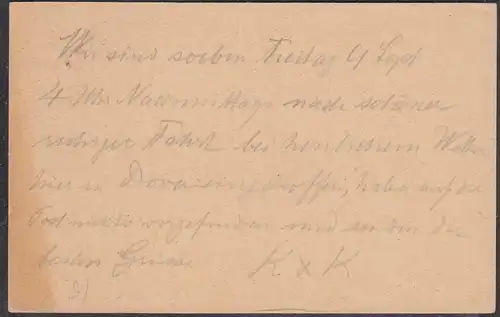 Wir sind soeben Freitag 4 Sept
4 Uhr Nachmittags nach schöner
ruhiger Fahrt bei herrlichem Wetter
hier in Dover eingetroffen, habe auf der
Post nichts vorgefunden und sende die
besten Grüsse K x K